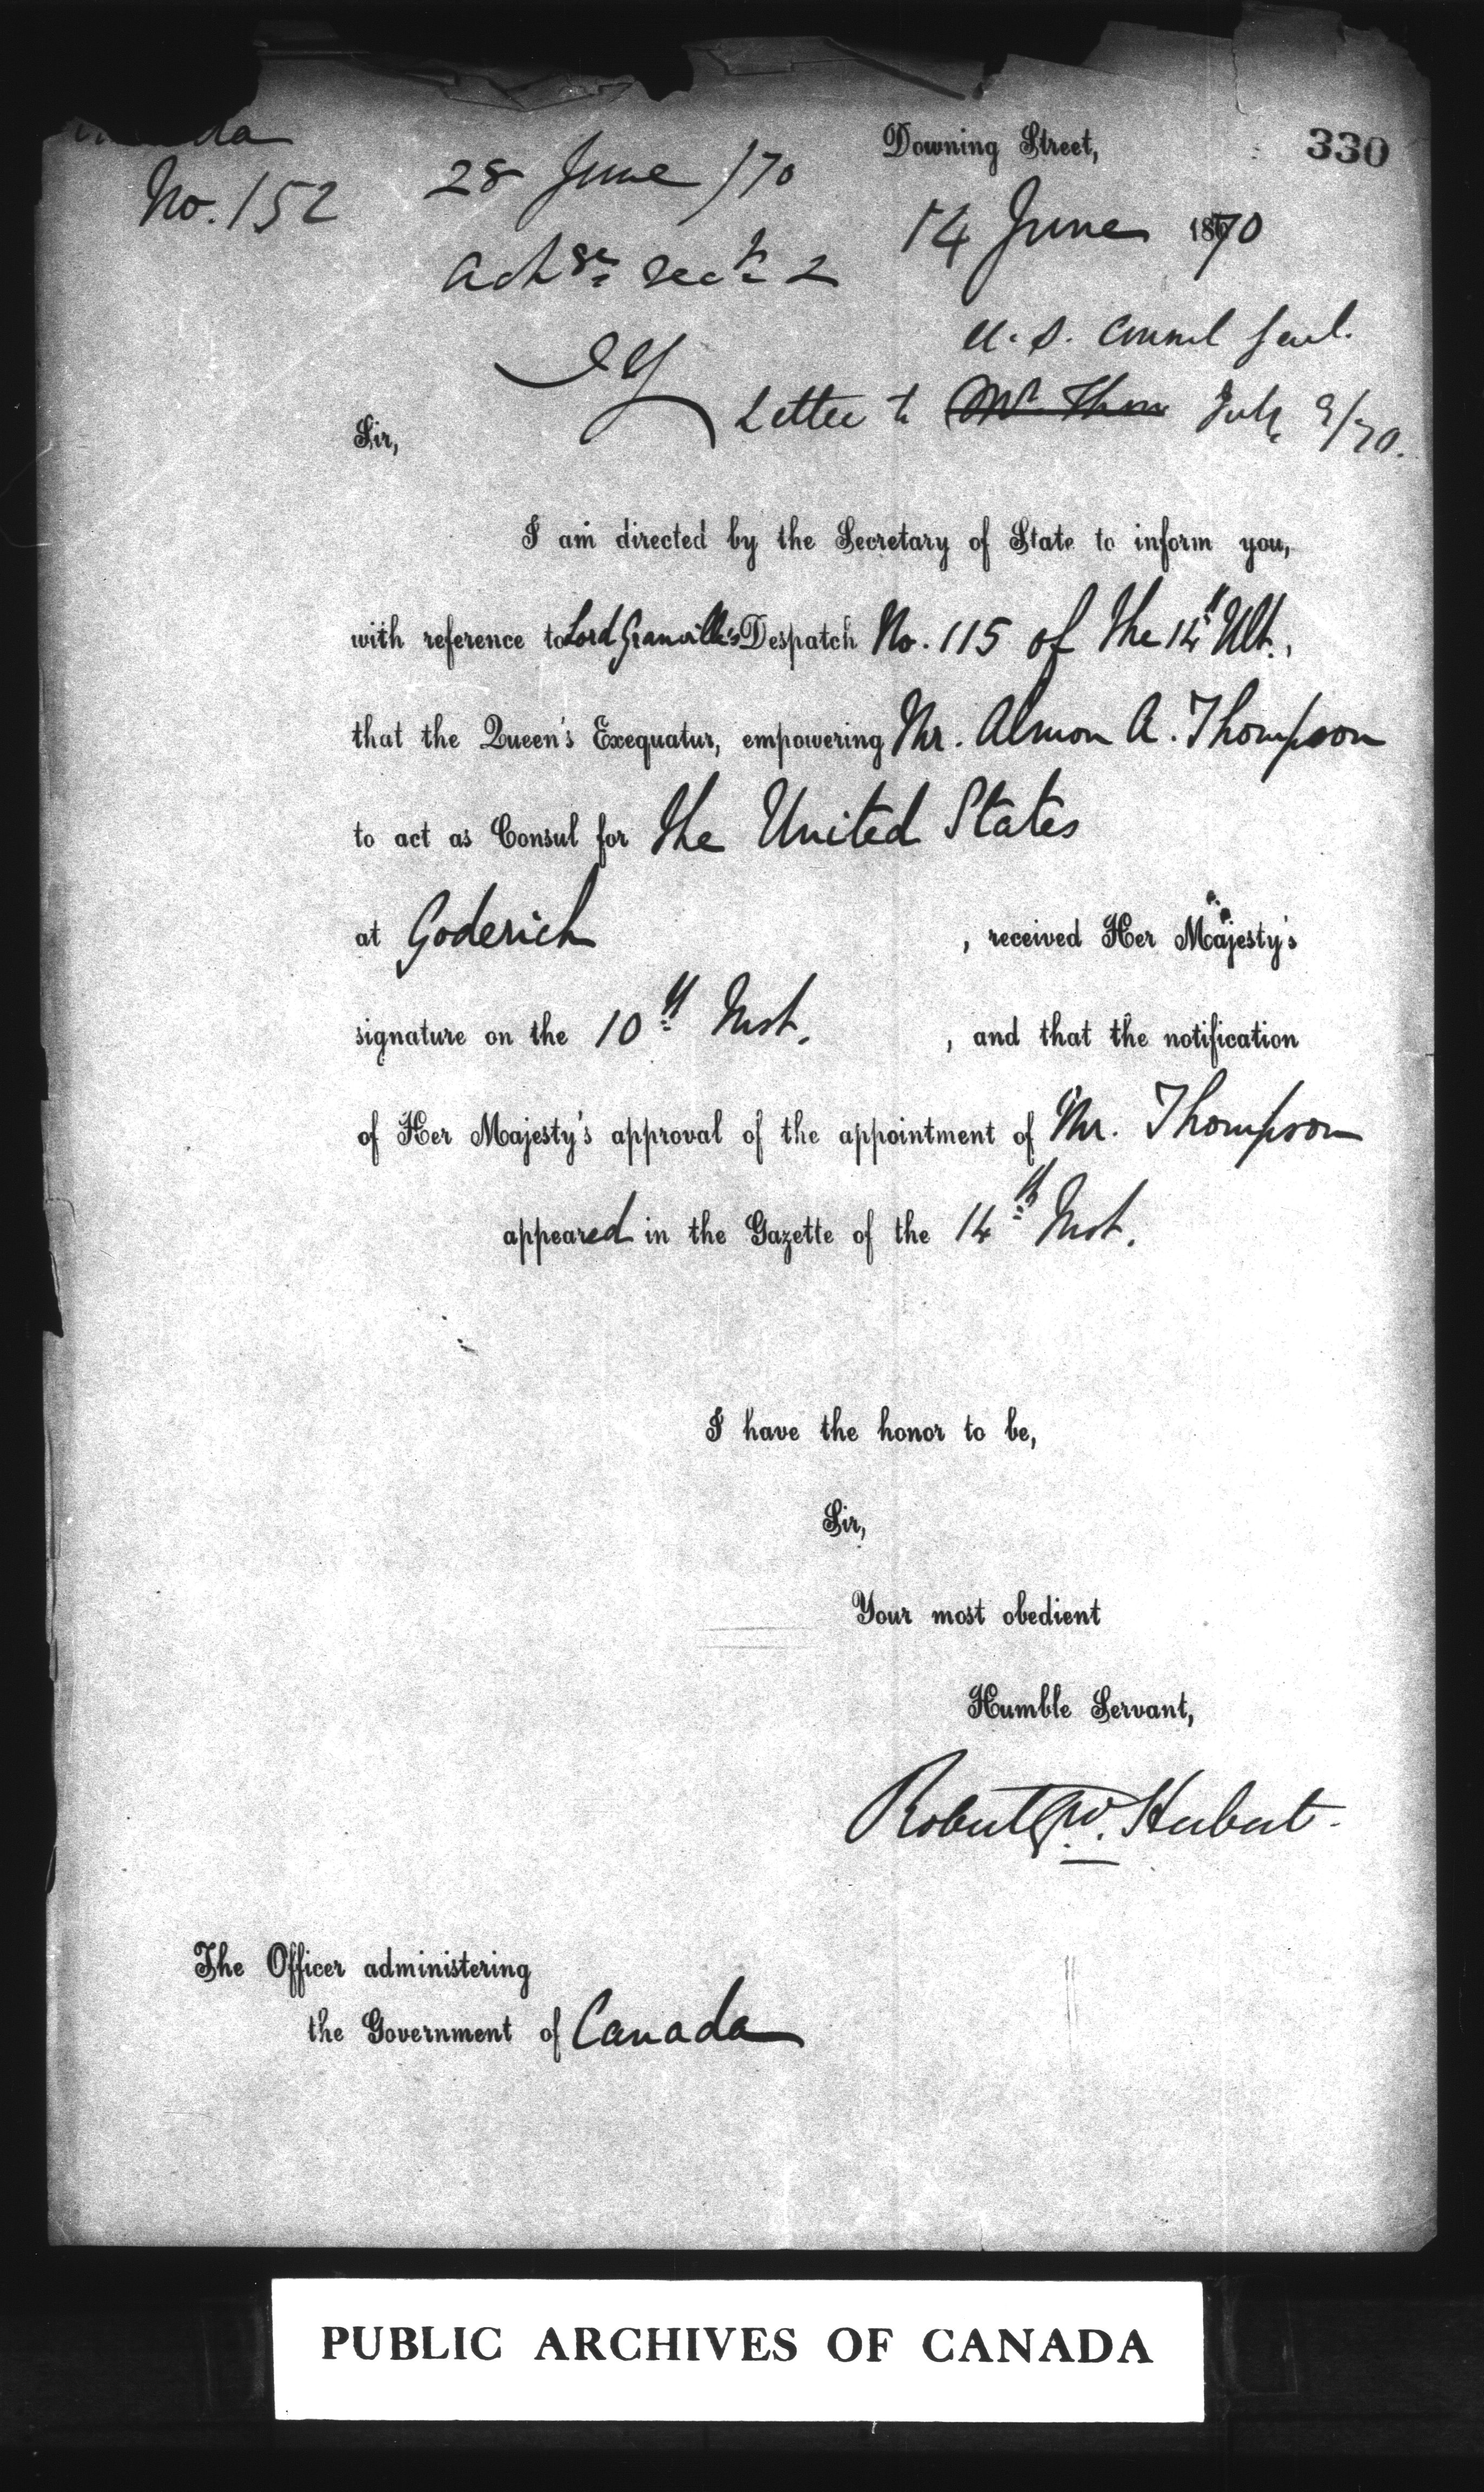 Canada
No. 152
28 June /70
Downing Street,
330
14 June 1870
Sect. 2
U.S. Consul Genl.
Letter to Mr. Thom July 9/70.
Sir,
I am directed by the Secretary of State to inform you,
with reference to Lord Granville's Despatch No. 115 of the 14th Ult.,
that the Queen's Exequatur, empowering Mr. Almon A. Thompson
to act as Consul for the United States
at Goderich, received Her Majesty's
signature on the 10th Inst., and that the notification
of Her Majesty's approval of the appointment of Mr. Thompson
appeared in the Gazette of the 14th Inst.
I have the honor to be,
Sir,
Your most obedient
Humble Servant,
Robert G. W. Herbert.
The Officer administering
the Government of Canada
PUBLIC ARCHIVES OF CANADA